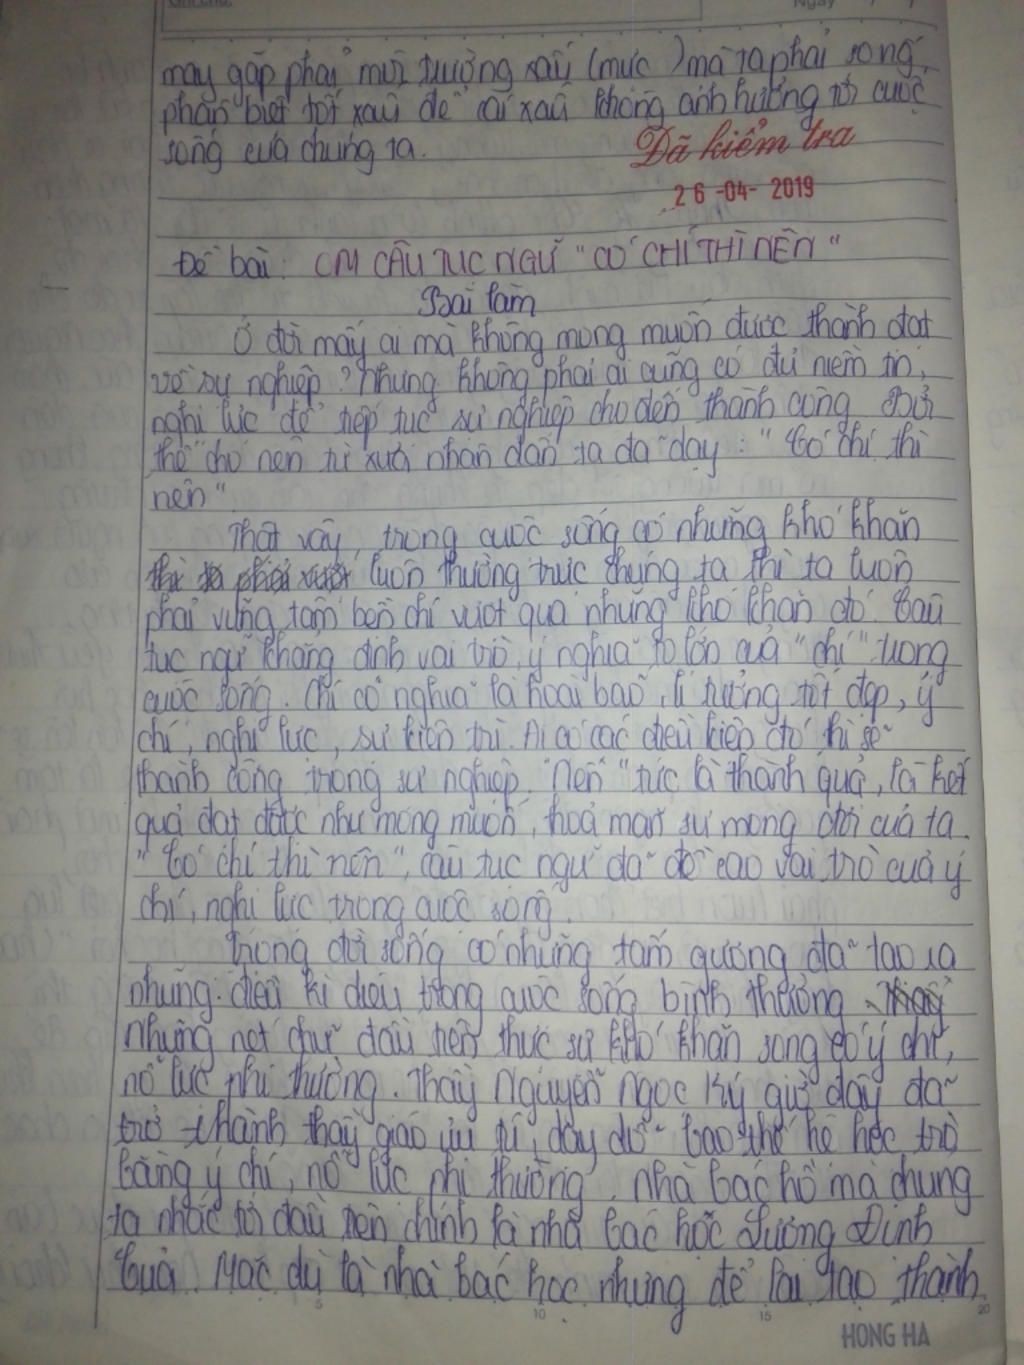 may gặp phải môi trường xấu (mực) mà ta phải sống,
phân biệt tốt xấu để cái xấu không ảnh hưởng tới cuộc
sống của chúng ta.
Đã kiểm tra
26-04-2019
Đề bài: CM CÂU TỤC NGỮ "CÓ CHÍ THÌ NÊN"
Bài làm
Ở đời mấy ai mà không mong muốn được thành đạt
về sự nghiệp? Nhưng không phải ai cũng có đủ niềm tin,
nghị lực để tiếp tục sự nghiệp cho đến thành công. Bởi
thế cho nên từ xưa nhân dân ta đã dạy: "Có chí thì
nên"
Thật vậy, trong cuộc sống có những khó khăn
luôn thường trực chúng ta thì ta luôn
phải vững tâm bền chí vượt qua những khó khăn đó. Câu
tục ngữ khẳng định vai trò, ý nghĩa to lớn của "chí" trong
cuộc sống. Chí có nghĩa là hoài bão, lí tưởng tốt đẹp, ý
chí, nghị lực, sự kiên trì. Ai có các điều kiện đó thì sẽ
thành công trong sự nghiệp. "Nên" tức là thành quả, là kết
quả đạt được như mong muốn, thoả mãn sự mong đợi của ta.
"Có chí thì nên", câu tục ngữ đã đề cao vai trò của ý
chí, nghị lực trong cuộc sống.
Trong đời sống có những tấm gương đã tạo ra
những điều kì diệu trong cuộc sống bình thường.
Những nét chữ đầu tiên thực sự khó khăn song có ý chí,
nỗ lực phi thường. Thầy Nguyễn Ngọc Ký giờ đây đã
trở thành thầy giáo ưu tú, dạy dỗ bao thế hệ học trò
bằng ý chí, nỗ lực phi thường. Nhà bác hồ mà chúng
ta nhắc tới đầu tiên chính là nhà bác học Lương Định
Của. Mặc dù là nhà bác học nhưng để lai tạo thành
5 10 15 20
HONG HA